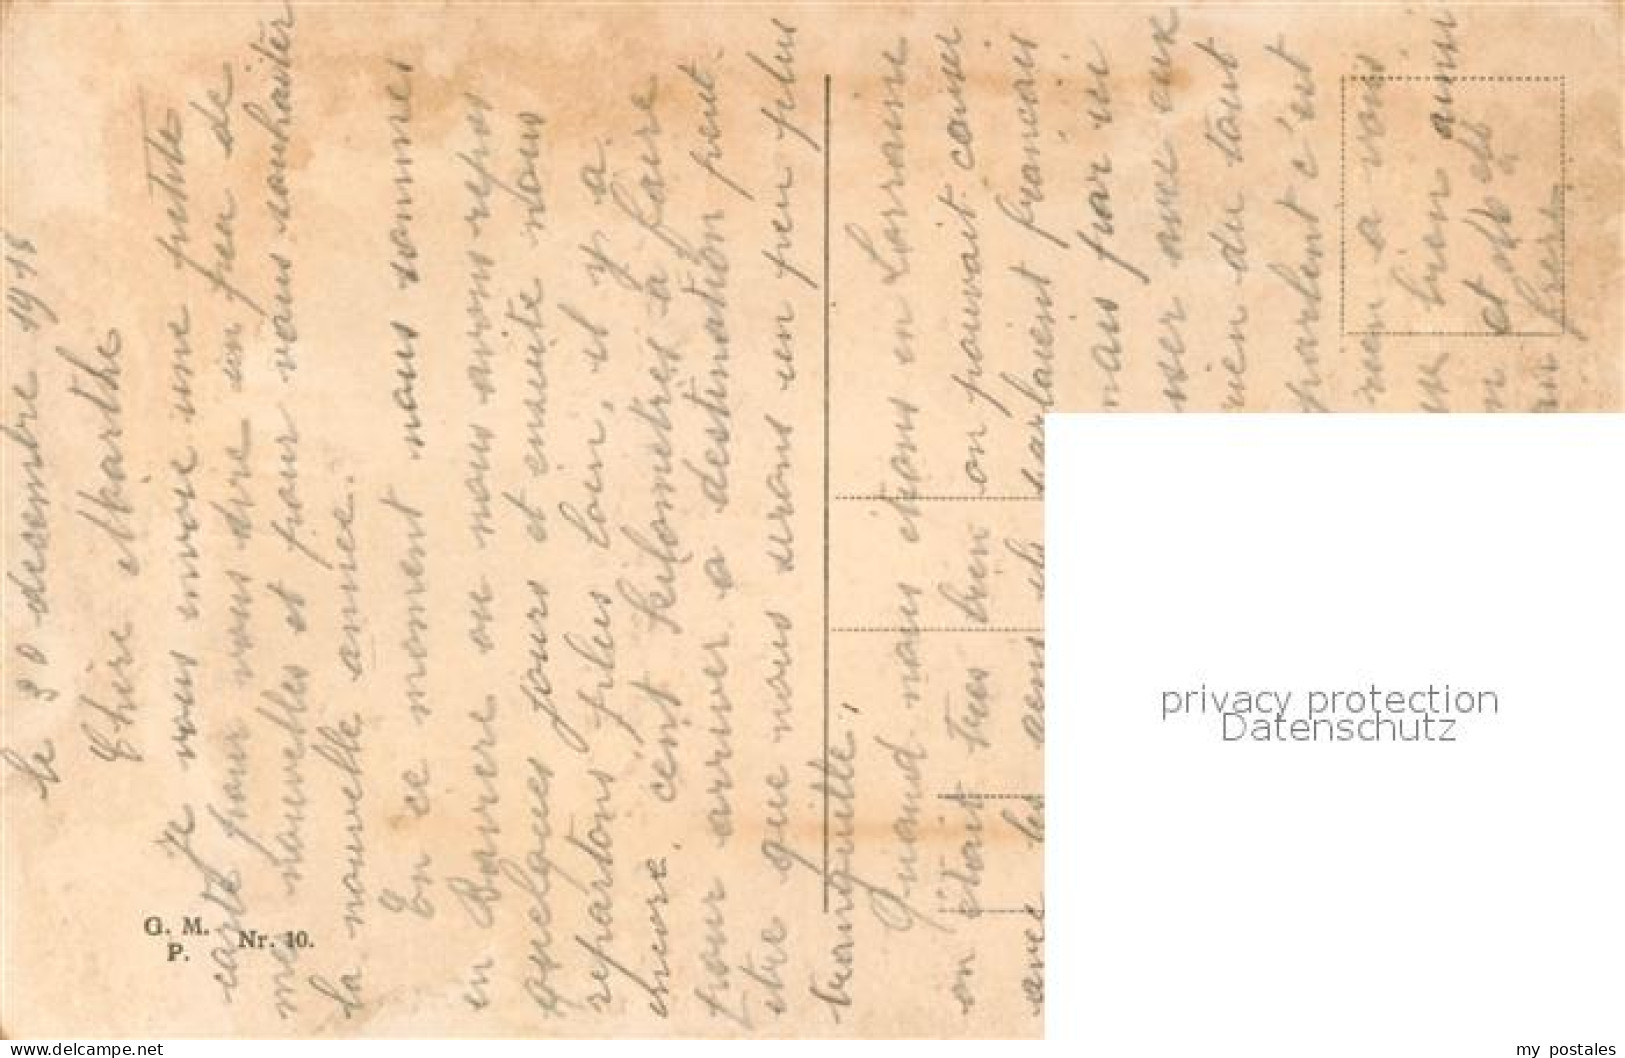 le 30 desembre 1918
Chère Marthe
Je vous envoie une petite
carte pour vous dire en peu de
mes nouvelles et pour vous souhaiter
la nouvelle année.
En ce moment nous sommes
en Baviere ou nous avons repos
quelques jours et ensuite nous
repartons plus loin, il y a
encore cent kilometres a faire
pour arriver a destination peut
etre que nous serons en peu plus
tranquille,
Quand nous étions en Lorraine
on était tres bien on pouvait causer
avec les gens ils parlaient francais
mais par ici
avec eux
rien du tout
parlent c'est
rien a vois
bien aussi
et
frere
G. M.
P.
Nr. 10.
privacy protection
Datenschutz
www.delcampe.net
my_postales